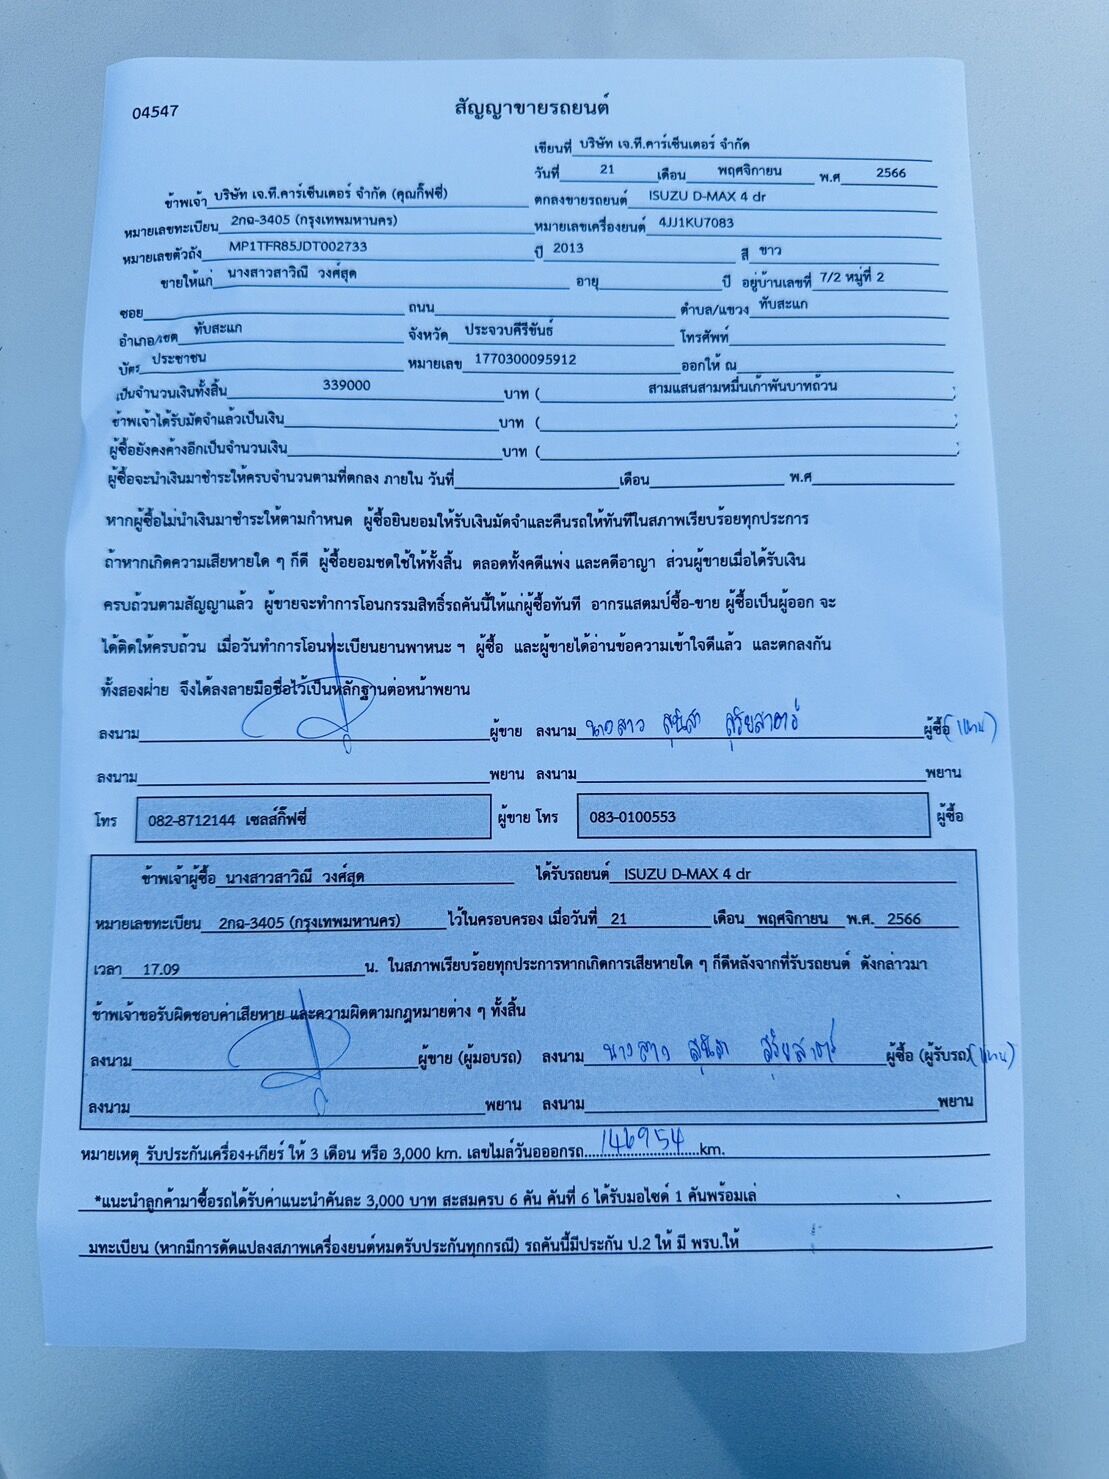 04547
สัญญาขายรถยนต์
เขียนที่ บริษัท เจ.ที.คาร์เซ็นเตอร์ จำกัด
วันที่ 21 เดือน พฤศจิกายน พ.ศ 2566
ข้าพเจ้า บริษัท เจ.ที.คาร์เซ็นเตอร์ จำกัด (คุณกิ๊ฟซี่) ตกลงขายรถยนต์ ISUZU D-MAX 4 dr
หมายเลขทะเบียน 2กฉ-3405 (กรุงเทพมหานคร) หมายเลขเครื่องยนต์ 4JJ1KU7083
หมายเลขตัวถัง MP1TFR85JDT002733 ปี 2013 สี ขาว
ขายให้แก่ นางสาวสาวิณี วงศ์สุด อายุ ปี อยู่บ้านเลขที่ 7/2 หมู่ที่ 2
ซอย ถนน ตำบล/แขวง ทับสะแก
อำเภอ/เขต ทับสะแก จังหวัด ประจวบคีรีขันธ์ โทรศัพท์
บัตร ประชาชน หมายเลข 1770300095912 ออกให้ ณ
เป็นจำนวนเงินทั้งสิ้น 339000 บาท ( สามแสนสามหมื่นเก้าพันบาทถ้วน )
ข้าพเจ้าได้รับมัดจำแล้วเป็นเงิน บาท ( )
ผู้ซื้อยังคงค้างอีกเป็นจำนวนเงิน บาท ( )
ผู้ซื้อจะนำเงินมาชำระให้ครบจำนวนตามที่ตกลง ภายใน วันที่ เดือน พ.ศ
หากผู้ซื้อไม่นำเงินมาชำระให้ตามกำหนด ผู้ซื้อยินยอมให้รับเงินมัดจำและคืนรถให้ทันทีในสภาพเรียบร้อยทุกประการ
ถ้าหากเกิดความเสียหายใด ๆ ก็ดี ผู้ซื้อยอมชดใช้ให้ทั้งสิ้น ตลอดทั้งคดีแพ่ง และคดีอาญา ส่วนผู้ขายเมื่อได้รับเงิน
ครบถ้วนตามสัญญาแล้ว ผู้ขายจะทำการโอนกรรมสิทธิ์รถคันนี้ให้แก่ผู้ซื้อทันที อากรแสตมป์ซื้อ-ขาย ผู้ซื้อเป็นผู้ออก จะ
ได้ติดให้ครบถ้วน เมื่อวันทำการโอนทะเบียนยานพาหนะ ฯ ผู้ซื้อ และผู้ขายได้อ่านข้อความเข้าใจดีแล้ว และตกลงกัน
ทั้งสองฝ่าย จึงได้ลงลายมือชื่อไว้เป็นหลักฐานต่อหน้าพยาน
ลงนาม ผู้ขาย ลงนาม นางสาว สุนิสา สุริยสาตร์ ผู้ซื้อ (แทน)
ลงนาม พยาน ลงนาม พยาน
โทร 082-8712144 เซลส์กิ๊ฟซี่ ผู้ขาย โทร 083-0100553 ผู้ซื้อ
ข้าพเจ้าผู้ซื้อ นางสาวสาวิณี วงศ์สุด ได้รับรถยนต์ ISUZU D-MAX 4 dr
หมายเลขทะเบียน 2กฉ-3405 (กรุงเทพมหานคร) ไว้ในครอบครอง เมื่อวันที่ 21 เดือน พฤศจิกายน พ.ศ. 2566
เวลา 17.09 น. ในสภาพเรียบร้อยทุกประการหากเกิดการเสียหายใด ๆ ก็ดีหลังจากที่รับรถยนต์ ดังกล่าวมา
ข้าพเจ้าขอรับผิดชอบค่าเสียหาย และความผิดตามกฎหมายต่าง ๆ ทั้งสิ้น
ลงนาม ผู้ขาย (ผู้มอบรถ) ลงนาม นางสาว สุนิสา สุริยสาตร์ ผู้ซื้อ (ผู้รับรถ) (แทน)
ลงนาม พยาน ลงนาม พยาน
หมายเหตุ รับประกันเครื่อง+เกียร์ ให้ 3 เดือน หรือ 3,000 km. เลขไมล์วันอออกรถ 146954 km.
*แนะนำลูกค้ามาซื้อรถได้รับค่าแนะนำคันละ 3,000 บาท สะสมครบ 6 คัน คันที่ 6 ได้รับมอไซด์ 1 คันพร้อมเล่
มทะเบียน (หากมีการดัดแปลงสภาพเครื่องยนต์หมดรับประกันทุกกรณี) รถคันนี้มีประกัน ป.2 ให้ มี พรบ.ให้